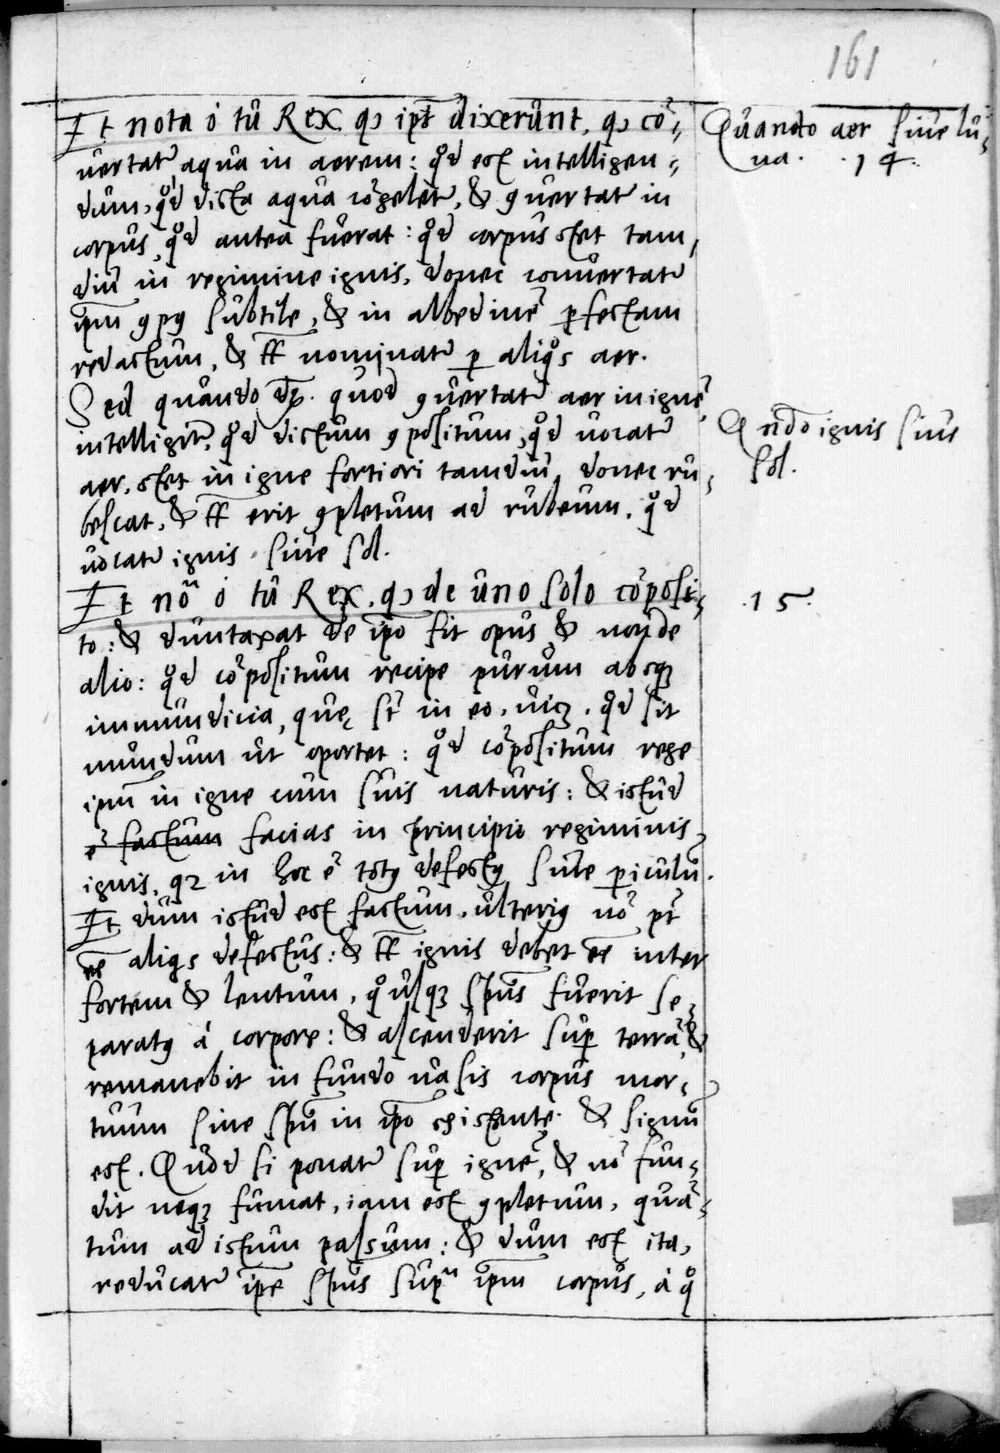 161
Et nota ó tu Rex. qꝫ ipi dixerunt, qꝫ cō-
uertat᷑ aqua in aerem: qd est intelligen-
dum, qd dicta aqua cōgelet᷑, & ꝯuertat᷑ in
corpus, qd antea fuerat: qd corpus stet tam
diu in regimine ignis, donec conuertat᷑
ipm ꝯpꝰ subtile, & in albedinē perfectam
redactum, & nominat᷑ p aliqs aer.
Sed quando quod ꝯuertat᷑ aer in ignē
intelligit᷑, qd dictum ꝯpositum, qd uocat᷑
aer, stet in igne fortiori tamdiu, donec ru-
bescat, & erit ꝯpletum ad rubeum, qd
uocat᷑ ignis siue sol.
Et nō ó tu Rex, qꝫ de uno solo cōposi-
to: & duntaxat de ipo fit opus & non de
alio: qd cōpositum recipe purum absqꝫ
immundicia, quę st in eo. uicꝫ. qd sit
mundum ut oportet: qd cōpositum rege
ipm in igne cum suis naturis: & istud
ē factum facias in principio regiminis
ignis, qꝛ in hoc ē totꝰ defectꝰ siue piculū.
Et dum istud est factum, ulteriꝰ nō pt
eē aliqs defectus: & ignis debet eē inter
fortem & lentum, qusqꝫ spūs fuerit se-
paratꝰ á corpore: & ascenderit sup terrā &
remanebit in fundo uasis corpus mor-
tuum siue spū in ipo existente. & signū
est. Quod si ponat᷑ sup ignē, & nō fun-
dit neqꝫ fumat, iam est ꝯpletum, quā-
tum ad istum passum: & dum est ita,
reducat᷑ ipe spūs supª ipm corpus, á q
Quando aer siue lu-
na. .14.
Qndo ignis siue
sol.
.15.